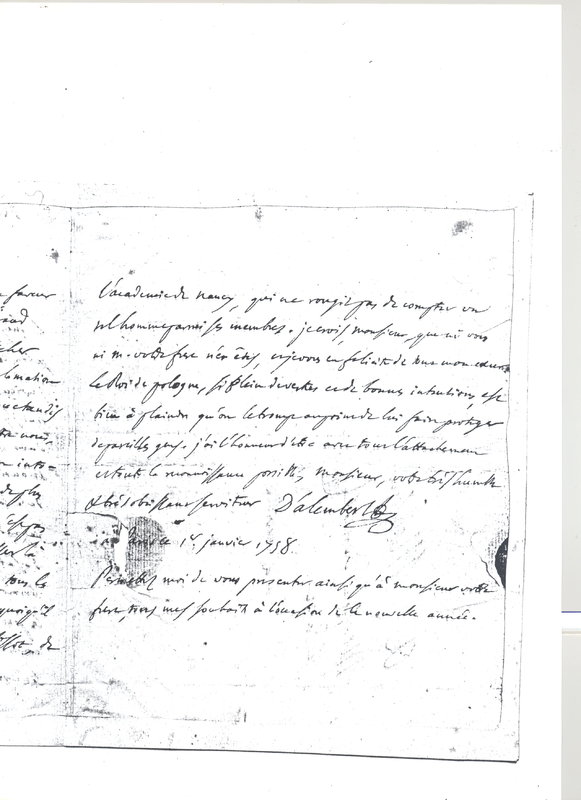 faveur
l'academie de nancy, qui ne rougit pas de compter un
tel homme parmi ses membres. je crois, monsieur, que ni vous
cher
ni m. votre frere n'en êtes, et je vous en felicite de tout mon coeur
le Roi de pologne, si plein de vertus et de bonnes intentions, est
bien à plaindre qu'on le trompe au point de lui faire proteger
de pareilles gens. j'ai l'honneur d'être avec tout l'attachement
et toute la reconnoissance possible, monsieur, votre très humble
de plus
& très obeissant serviteur D'alembert
à Paris ce 1er. janvier 1758.
tous les
Permettez moi de vous presenter ainsi qu'à monsieur votre
frere, tous mes souhaits à l'occasion de la nouvelle année.
de